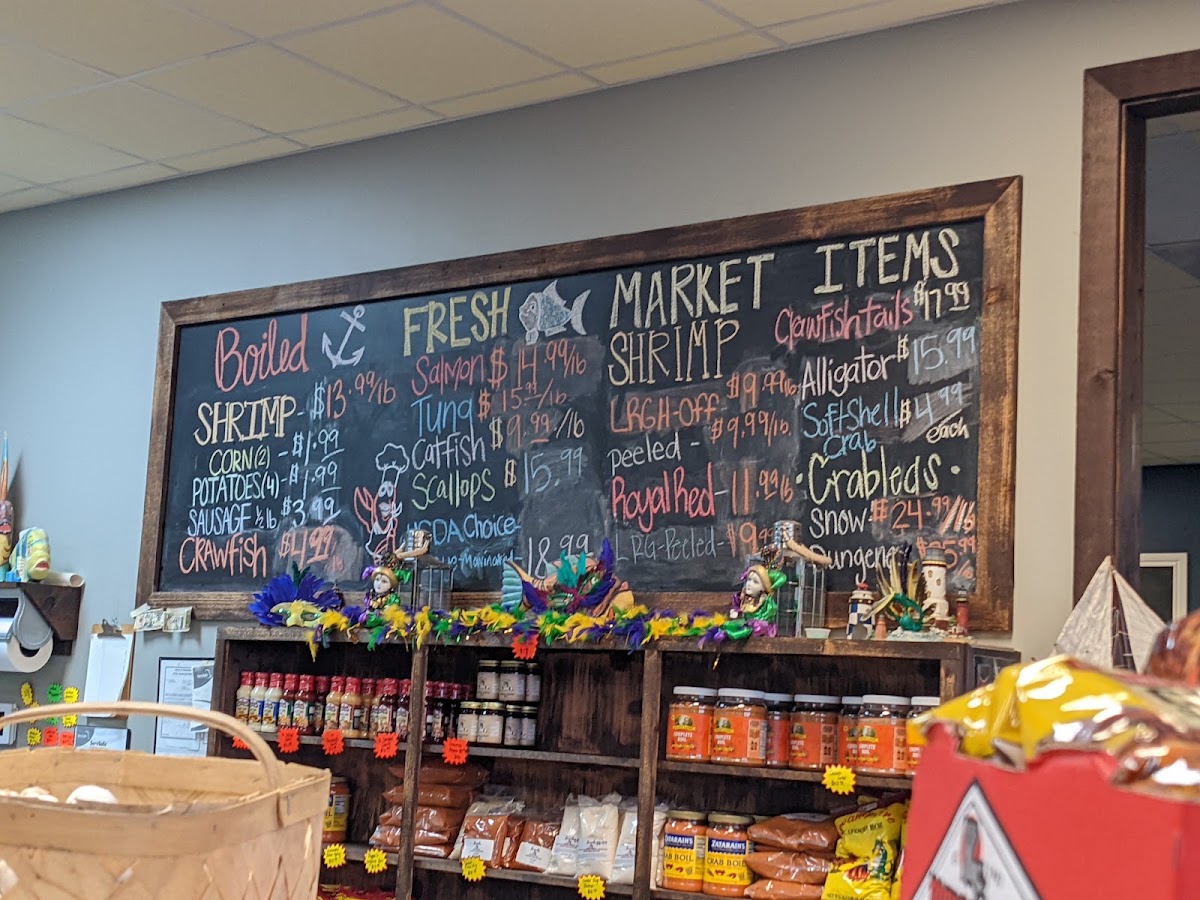 Boiled
SHRIMP - $13.99/lb
CORN (2) - $1.99
POTATOES (4) - $1.99
SAUSAGE ½ lb $3.99
CRAWFISH $4.99
FRESH MARKET ITEMS
Salmon $14.99/lb
Tuna $15.99/lb
Catfish $9.99/lb
Scallops $15.99
USDA Choice-
18.99
SHRIMP
LRGH-OFF $9.99 lb
peeled - $9.99/lb.
Royal Red - 11.99 lb
LRG-Peeled - $9
Crawfish tails $17.99
Alligator $15.99
Softshell Crab $4.99 each
Crableds
Snow $24.99/lb
COMPLETE BOIL
COMPLETE BOIL
ZATARAIN'S
CRAB BOIL
ZATARAIN'S
CRAB BOIL